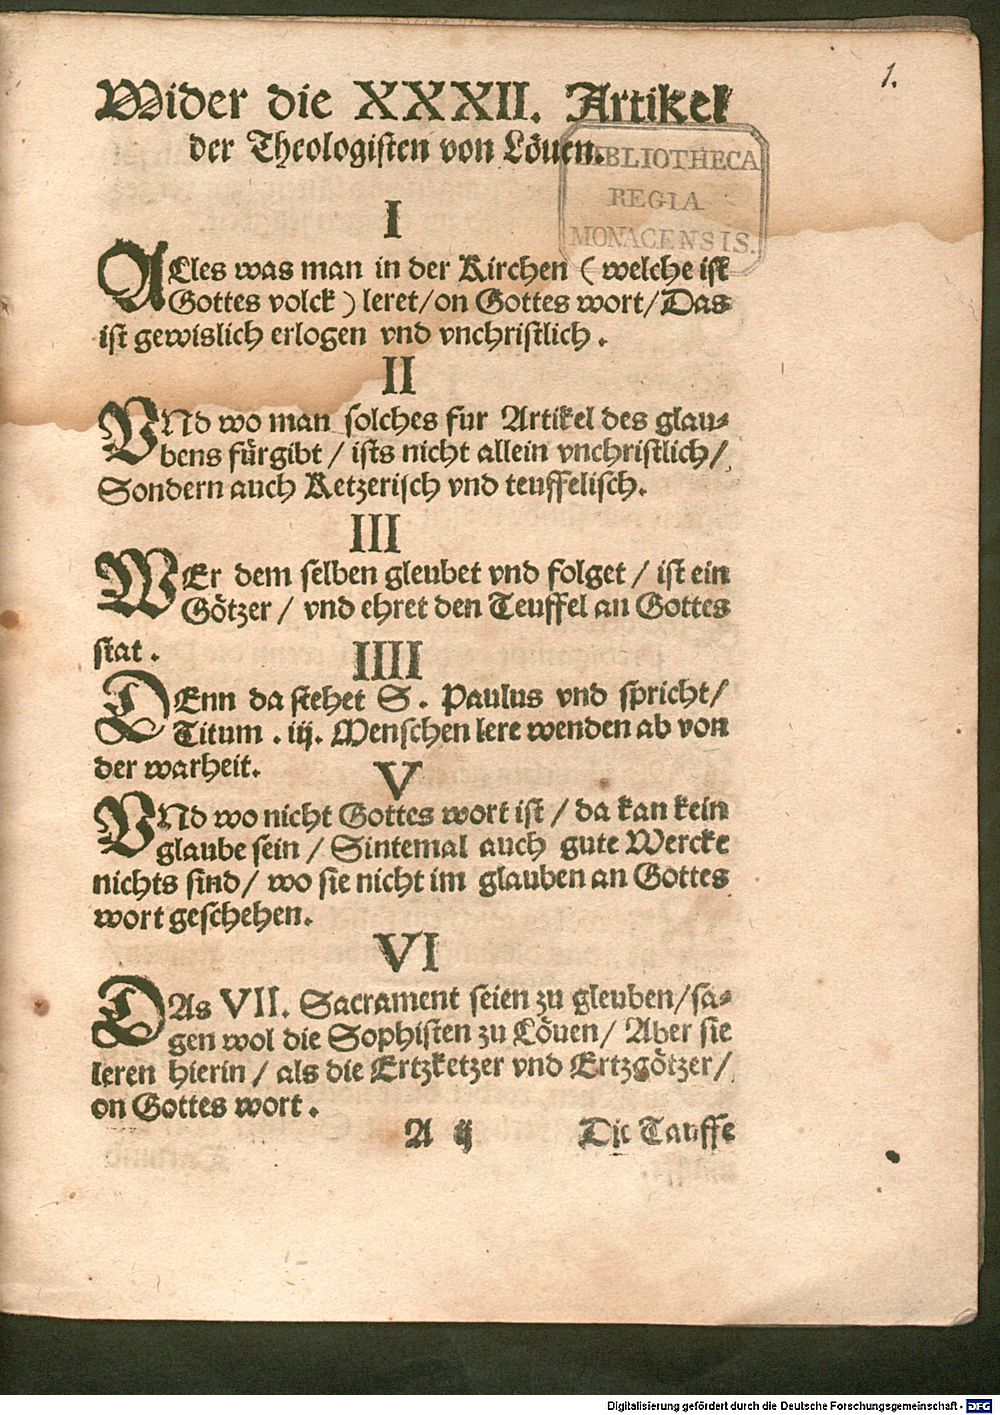 1.
Wider die XXXII. Artikel
der Theologisten von Löuen.
BIBLIOTHECA
REGIA
MONACENSIS.
I
ALles was man in der Kirchen ( welche ist
Gottes volck ) leret / on Gottes wort / Das
ist gewislich erlogen vnd vnchristlich .
II
VNd wo man solches fur Artikel des glau-
bens fürgibt / ists nicht allein vnchristlich /
Sondern auch Ketzerisch vnd teuffelisch.
III
WEr dem selben gleubet vnd folget / ist ein
Götzer / vnd ehret den Teuffel an Gottes
stat .
IIII
DEnn da stehet S . Paulus vnd spricht /
Titum . iij. Menschen lere wenden ab von
der warheit.
V
VNd wo nicht Gottes wort ist / da kan kein
glaube sein / Sintemal auch gute Wercke
nichts sind / wo sie nicht im glauben an Gottes
wort geschehen.
VI
DAs VII. Sacrament seien zu gleuben / sa-
gen wol die Sophisten zu Löuen / Aber sie
leren hierin / als die Ertzketzer vnd Ertzgötzer /
on Gottes wort .
A ij Die Tauffe
Digitalisierung gefördert durch die Deutsche Forschungsgemeinschaft - DFG